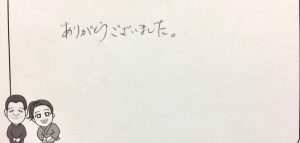 ありがとうございました。